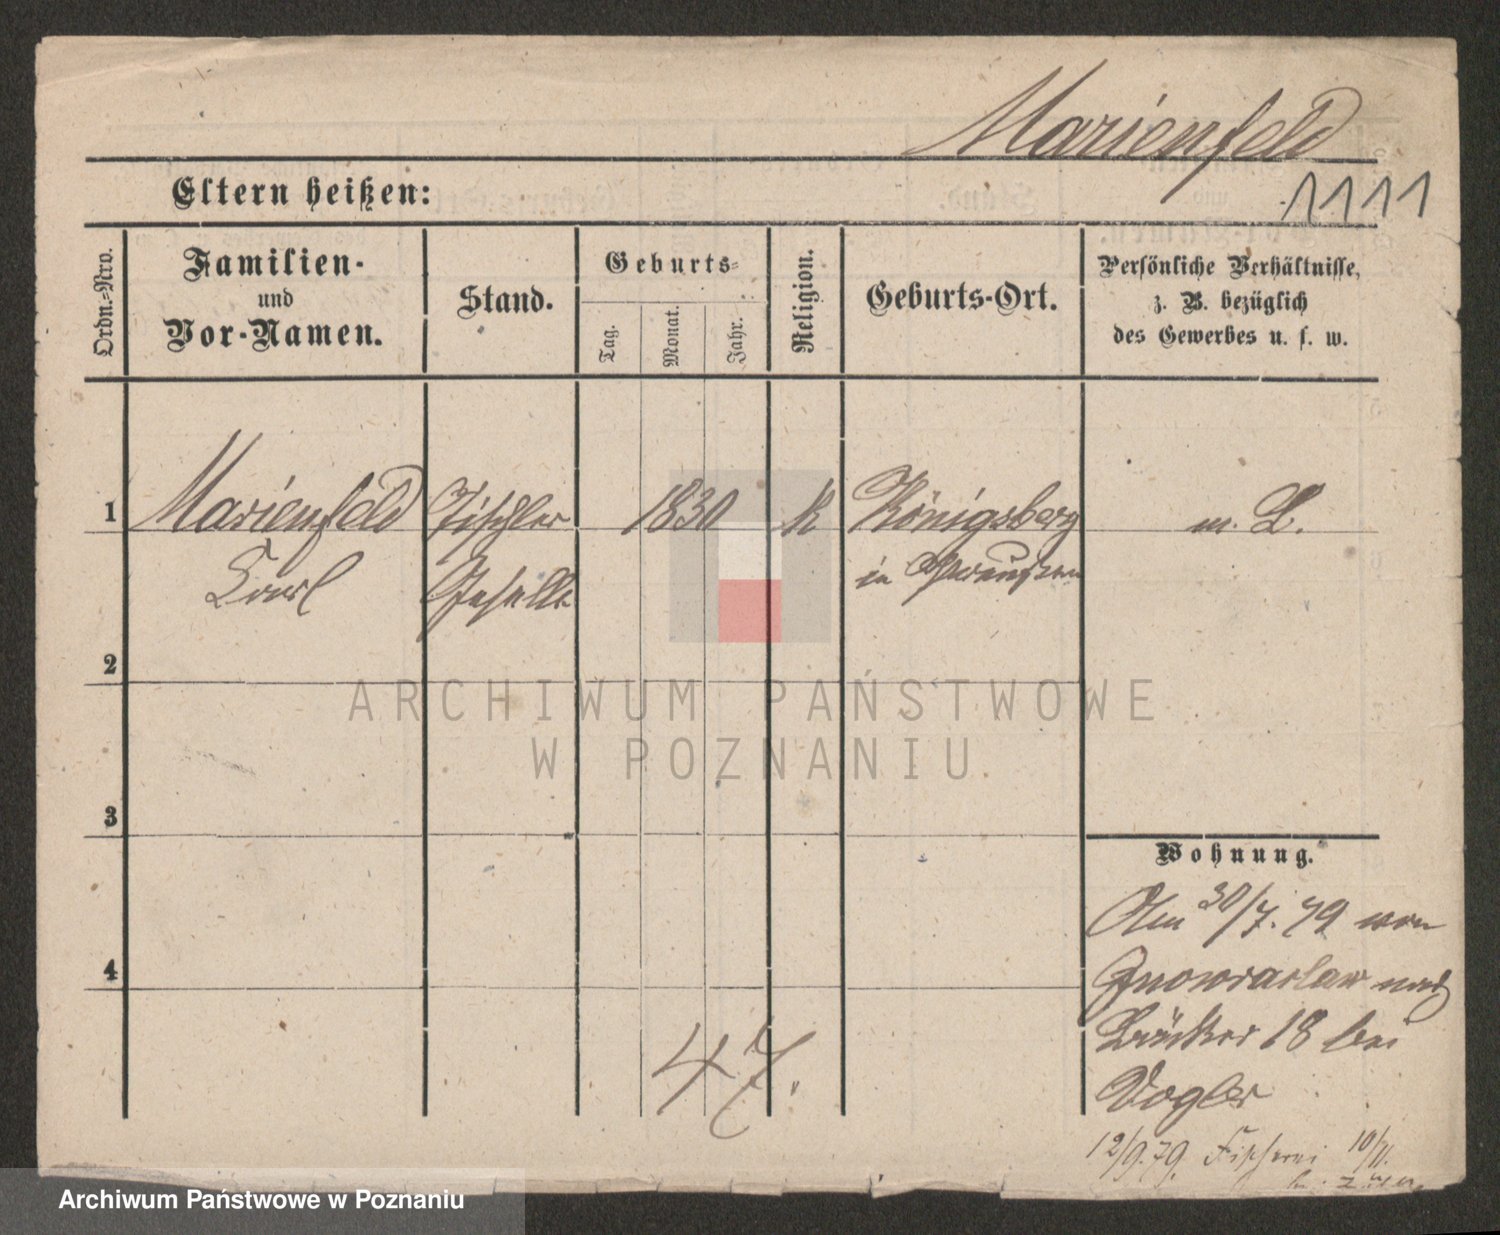 Marienfeld
Eltern heißen:
1111
Ordn.-Nro.
Familien-
und
Vor-Namen.
Stand.
Geburts-
Tag.
Monat.
Jahr.
Religion.
Geburts-Ort.
Persönliche Verhältnisse,
z. B. bezüglich
des Gewerbes u. s. w.
1
Marienfeld
Carl
Tischler
Geselle
1830
K
Königsberg
in Ostpreußen
m. L.
2
3
4
47.
Wohnung.
Am 30/7. 79 von
Inowraclaw nach
Bäcker 18 bei
Vogler
12/9. 79. Fischerei 10/11.
ARCHIWUM PAŃSTWOWE
W POZNANIU
Archiwum Państwowe w Poznaniu